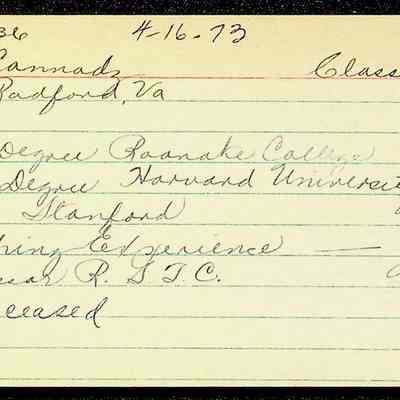 36 4-16-73
Cannady Class
Radford, Va
Degree Roanoke College
Degree Harvard Universit
Stanford
hing Experience —
R. S. T. C.
ceased